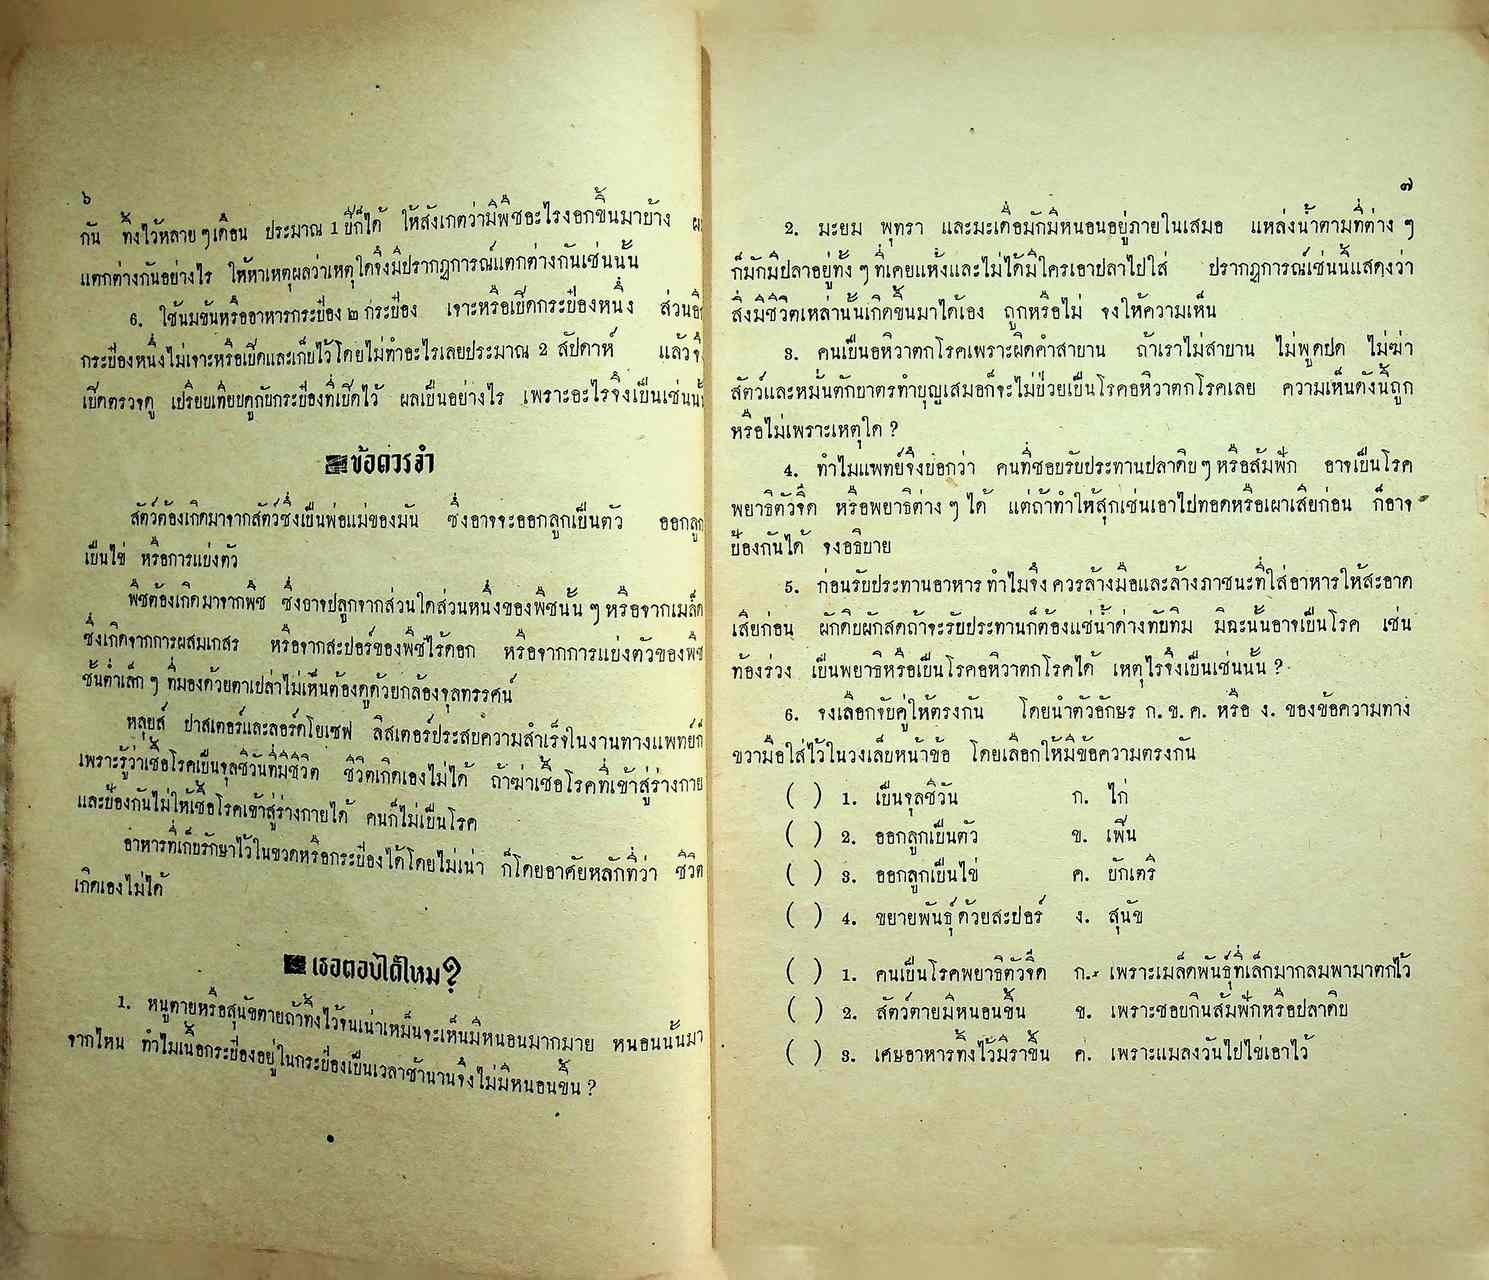 ๖
กัน ทิ้งไว้หลายๆเดือน ประมาณ 1 ปีก็ได้ ให้สังเกตว่ามีพืชอะไรงอกขึ้นมาบ้าง
แตกต่างกันอย่างไร ให้หาเหตุผลว่าเหตุใดจึงมีปรากฏการณ์แตกต่างกันเช่นนั้น
6. ใช้นมข้นหรืออาหารกระป๋อง ๒ กระป๋อง เจาะหรือเปิดกระป๋องหนึ่ง ส่วนอี
กระป๋องหนึ่งไม่เจาะหรือเปิดและเก็บไว้โดยไม่ทำอะไรเลยประมาณ 2 สัปดาห์ แล้วจึ
เปิดตรวจดู เปรียบเทียบดูกับกระป๋องที่เปิดไว้ ผลเป็นอย่างไร เพราะอะไรจึงเป็นเช่นนั้
ข้อควรจำ
สัตว์ต้องเกิดมาจากสัตว์ซึ่งเป็นพ่อแม่ของมัน ซึ่งอาจจะออกลูกเป็นตัว ออกลูก
เป็นไข่ หรือการแบ่งตัว
พืชต้องเกิดมาจากพืช ซึ่งอาจปลูกจากส่วนใดส่วนหนึ่งของพืชนั้น ๆ หรือจากเมล็ด
ซึ่งเกิดจากการผสมเกสร หรือจากสะปอร์ของพืชไร้ดอก หรือจากการแบ่งตัวของพืช
ชั้นต่ำเล็ก ๆ ที่มองด้วยตาเปล่าไม่เห็นต้องดูด้วยกล้องจุลทรรศน์
หลุยส์ ปาสเตอร์และลอร์ดโยเซฟ ลิสเตอร์ประสบความสำเร็จในงานทางแพทย์ก็
เพราะรู้ว่าเชื้อโรคเป็นจุลชีวันที่มีชีวิต ชีวิตเกิดเองไม่ได้ ถ้าฆ่าเชื้อโรคที่เข้าสู่ร่างกาย
และป้องกันไม่ให้เชื้อโรคเข้าสู่ร่างกายได้ คนก็ไม่เป็นโรค
อาหารที่เก็บรักษาไว้ในขวดหรือกระป๋องได้โดยไม่เน่า ก็โดยอาศัยหลักที่ว่า ชีวิต
เกิดเองไม่ได้
เธอตอบได้ไหม?
1. หนูตายหรือสุนัขตายถ้าทิ้งไว้จนเน่าเหม็นจะเห็นมีหนอนมากมาย หนอนนั้นมา
จากไหน ทำไมเนื้อกระป๋องอยู่ในกระป๋องเป็นเวลาช้านานจึงไม่มีหนอนขึ้น ?
๗
2. มะยม พุทรา และมะเดื่อมักมีหนอนอยู่ภายในเสมอ แหล่งน้ำตามที่ต่าง ๆ
ก็มักมีปลาอยู่ทั้ง ๆ ที่เคยแห้งและไม่ได้มีใครเอาปลาไปใส่ ปรากฏการณ์เช่นนี้แสดงว่า
สิ่งมีชีวิตเหล่านั้นเกิดขึ้นมาได้เอง ถูกหรือไม่ จงให้ความเห็น
3. คนเป็นอหิวาตกโรคเพราะผิดคำสาบาน ถ้าเราไม่สาบาน ไม่พูดปด ไม่ฆ่า
สัตว์และหมั่นตักบาตรทำบุญเสมอก็จะไม่ป่วยเป็นโรคอหิวาตกโรคเลย ความเห็นดังนี้ถูก
หรือไม่เพราะเหตุใด ?
4. ทำไมแพทย์จึงบอกว่า คนที่ชอบรับประทานปลาดิบๆ หรือส้มฟัก อาจเป็นโรค
พยาธิตัวจี๊ด หรือพยาธิต่าง ๆ ได้ แต่ถ้าทำให้สุกเช่นเอาไปทอดหรือเผาเสียก่อน ก็อาจ
ป้องกันได้ จงอธิบาย
5. ก่อนรับประทานอาหาร ทำไมจึง ควรล้างมือและล้างภาชนะที่ใส่อาหารให้สะอาด
เสียก่อน ผักดิบผักสดถ้าจะรับประทานก็ต้องแช่น้ำด่างทับทิม มิฉะนั้นอาจเป็นโรค เช่น
ท้องร่วง เป็นพยาธิหรือเป็นโรคอหิวาตกโรคได้ เหตุไรจึงเป็นเช่นนั้น ?
6. จงเลือกจับคู่ให้ตรงกัน โดยนำตัวอักษร ก. ข. ค. หรือ ง. ของข้อความทาง
ขวามือใส่ไว้ในวงเล็บหน้าข้อ โดยเลือกให้มีข้อความตรงกัน
( ) 1. เป็นจุลชีวัน ก. ไก่
( ) 2. ออกลูกเป็นตัว ข. เฟิน
( ) 3. ออกลูกเป็นไข่ ค. บักเตรี
( ) 4. ขยายพันธุ์ด้วยสะปอร์ ง. สุนัข
( ) 1. คนเป็นโรคพยาธิตัวจี๊ด ก. เพราะเมล็ดพันธุ์ที่เล็กมากลมพามาตกไว้
( ) 2. สัตว์ตายมีหนอนขึ้น ข. เพราะชอบกินส้มฟักหรือปลาดิบ
( ) 3. เศษอาหารทิ้งไว้มีราขึ้น ค. เพราะแมลงวันไปไข่เอาไว้